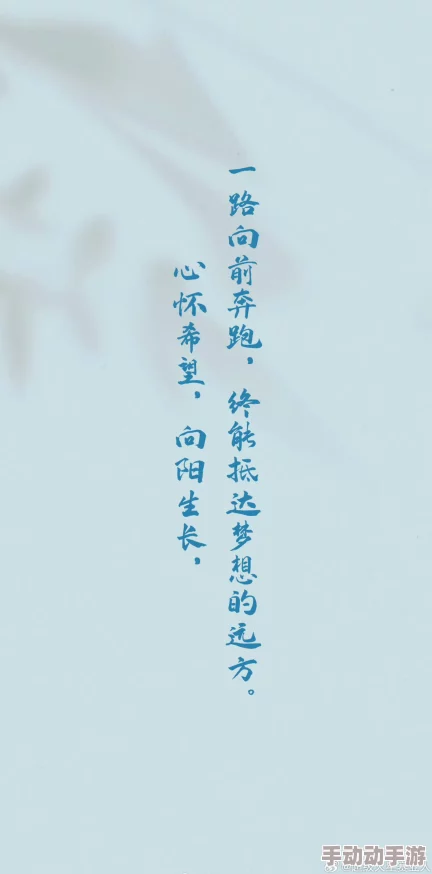 心怀希望，向阳生长，
一路向前奔跑，终能抵达梦想的远方。
手动动手游